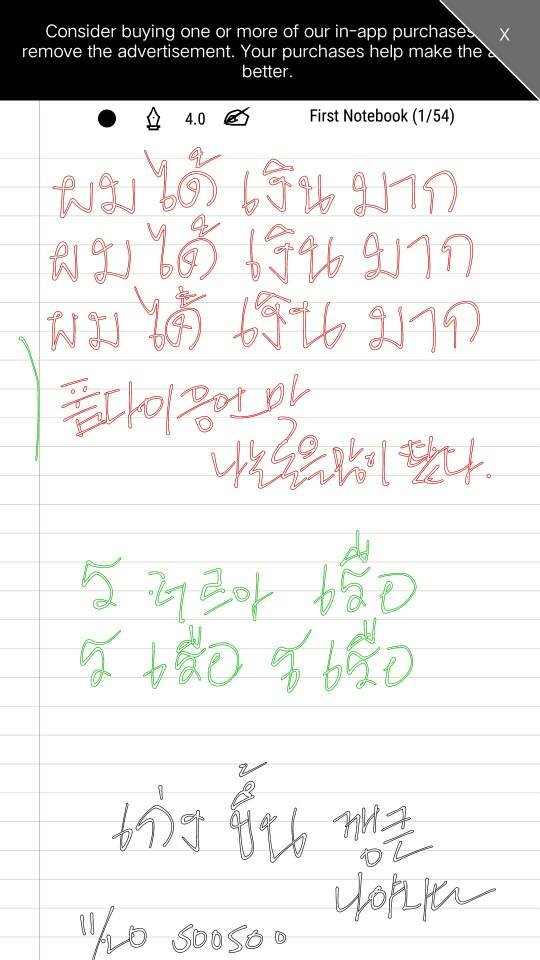 Consider buying one or more of our in-app purchases
remove the advertisement. Your purchases help make the a
better.
X
4.0 First Notebook (1/54)
ผมได้ เงิน มาก
ผมได้ เงิน มาก
ผมได้ เงิน มาก
품다이 응어 마
나는 돈을 많이 땄다.
ร 러르아 เรือ
ร เรือ ร เรือ
เก่ง ขึ้น 껭큰
11/20 500500